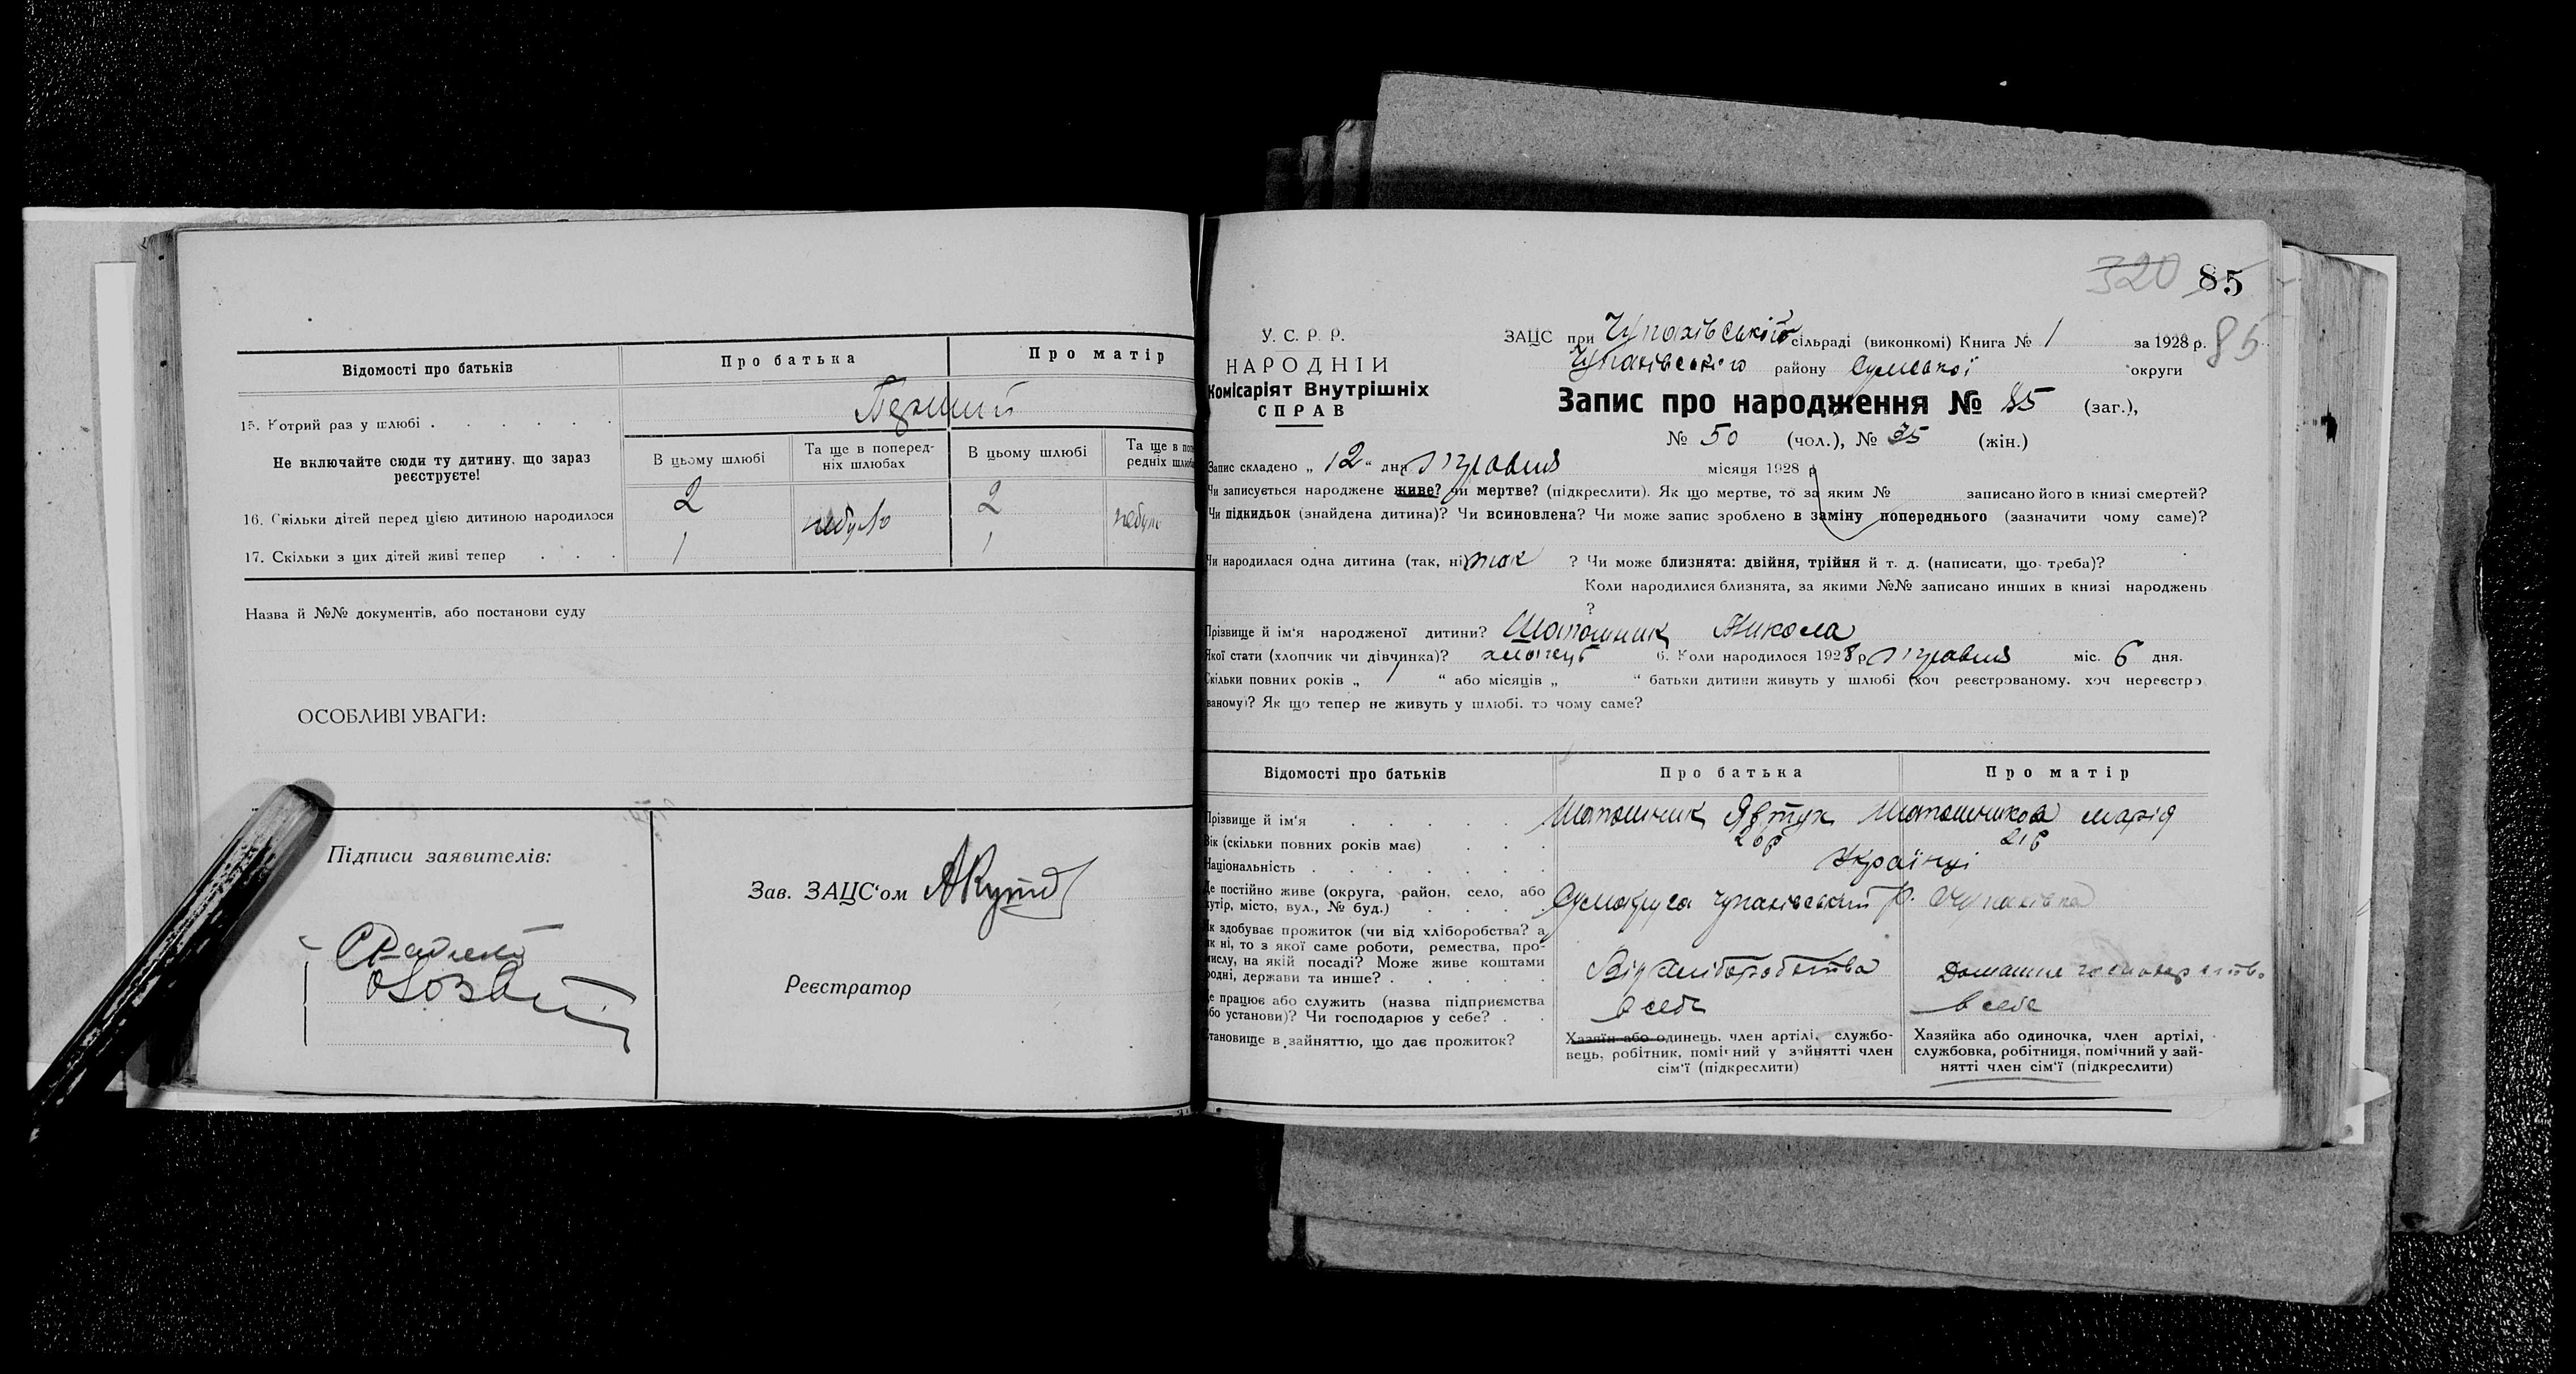 Відомості про батьків
Про батька
Про матір
15. Котрий раз у шлюбі
Перший
Не включайте сюди ту дитину, що зараз реєструєте!
В цьому шлюбі
Та ще в поперед-
ніх шлюбах
В цьому шлюбі
Та ще в попе
редніх шлюба
16. Скільки дітей перед цією дитиною народилося
2
небуло
2
небуло
17. Скільки з цих дітей живі тепер
1
1
Назва й №№ документів, або постанови суду
ОСОБЛИВІ УВАГИ:
Підписи заявителів:
Зав. ЗАЦС'ом
Реєстратор
320 85
85
У. С. Р. Р.
НАРОДНІЙ
Комісаріят Внутрішніх
СПРАВ
ЗАЦС при Чупахівській сільраді (виконкомі) Книга № 1 за 1928 р.
Чупахівського району Сумської округи
Запис про народження № 85 (заг.),
№ 50 (чол.), № 35 (жін.)
Запис складено „ 12 " дня травня місяця 1928 р.
Чи записується народжене живе? чи мертве? (підкреслити). Як що мертве, то за яким № записано його в книзі смертей?
Чи підкидьок (знайдена дитина)? Чи всиновлена? Чи може запис зроблено в заміну попереднього (зазначити чому саме)?
Чи народилася одна дитина (так, ні) так ? Чи може близнята: двійня, трійня й т. д. (написати, що треба)?
Коли народилися близнята, за якими №№ записано инших в книзі народжень
?
Прізвище й ім'я народженої дитини? Шапошник Микола
Якої стати (хлопчик чи дівчинка)? хлопець 6. Коли народилося 1928 р. травня міс. 6 дня.
Скільки повних років „ " або місяців „ " батьки дитини живуть у шлюбі (хоч реєстрованому, хоч нереєстро
ваному)? Як що тепер не живуть у шлюбі, то чому саме?
Відомості про батьків
Про батька
Про матір
Прізвище й ім'я
Шапошник Явтух
Шапошникова марія
Вік (скільки повних років має)
26р
21р
Національність
Українці
Де постійно живе (округа, район, село, або
хутір, місто, вул., № буд.)
Сумокруга Чупахівський р. Чупахівка
Як здобуває прожиток (чи від хліборобства? а
як ні, то з якої саме роботи, ремества, про-
мислу, на якій посаді? Може живе коштами
родні, держави та инше?
Від хліборобства
Домашнє господарство
Де працює або служить (назва підприємства
або установи)? Чи господарює у себе?
в себе
в себе
Становище в зайняттю, що дає прожиток?
Хазяїн або одинець, член артілі, службо-
вець, робітник, помічний у зайнятті член
сім'ї (підкреслити)
Хазяйка або одиночка, член артілі,
службовка, робітниця, помічний у зай-
нятті член сім'ї (підкреслити)